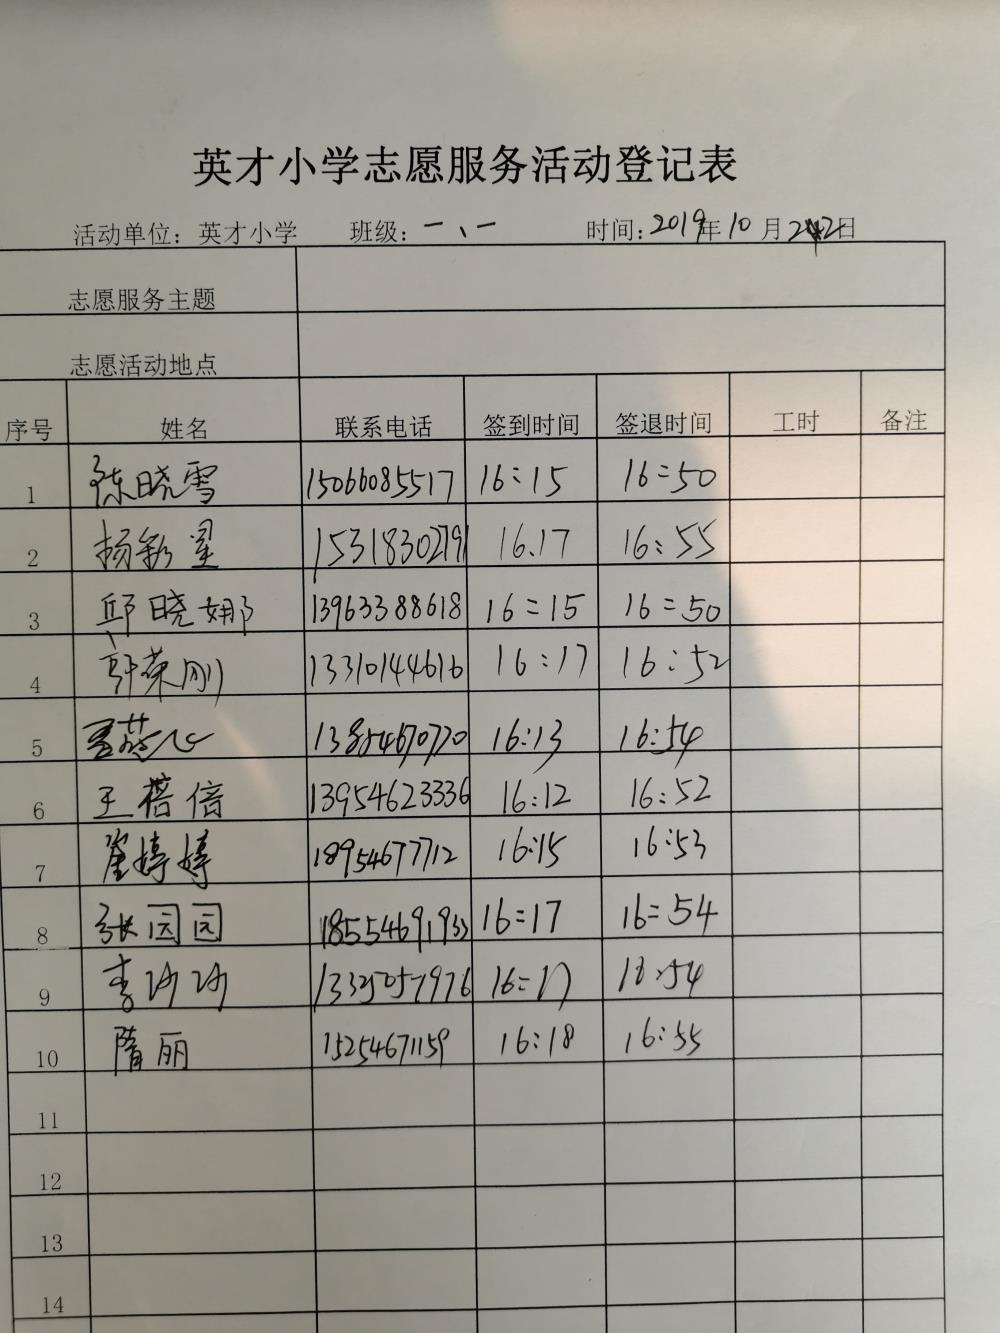 英才小学志愿服务活动登记表
活动单位：英才小学 班级：一、一 时间：2019年10月22日
志愿服务主题
志愿活动地点
序号 姓名 联系电话 签到时间 签退时间 工时 备注
1 陈晓雪 15066085517 16:15 16:50
2 杨彩星 15318302791 16.17 16:55
3 邱晓娜 13963388618 16:15 16:50
4 荣刚 13310144616 16:17 16:52
5 13854670770 16:13 16:54
6 王蓓倍 13954623336 16:12 16:52
7 崔婷婷 18954677712 16:15 16:53
8 张园园 18554691933 16:17 16:54
9 李沙沙 13325057976 16:17 16:54
10 隋丽 15254671159 16:18 16:55
11
12
13
14